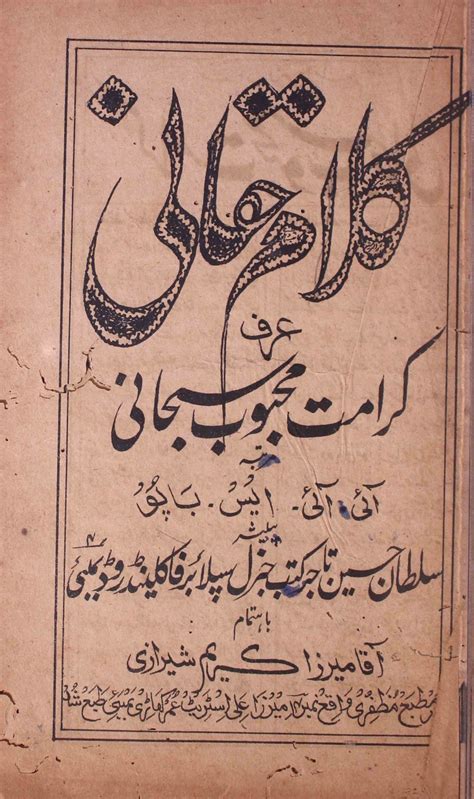 کلام حقانی
عرف
کرامت محبوب سبحانی
مرتبہ
آئی۔ آئی۔ ایس۔ باپو
پبلیشر
سلطان حسین تاجر کتب جنرل سپلائر فاکلینڈ روڈ بمبئی ۴
باہتمام
آقا میرزا کریم شیرازی
در مطبع مظفری واقع نمبر میرزا علی اسٹریٹ عمر کھاڑی بمبئی طبع شد